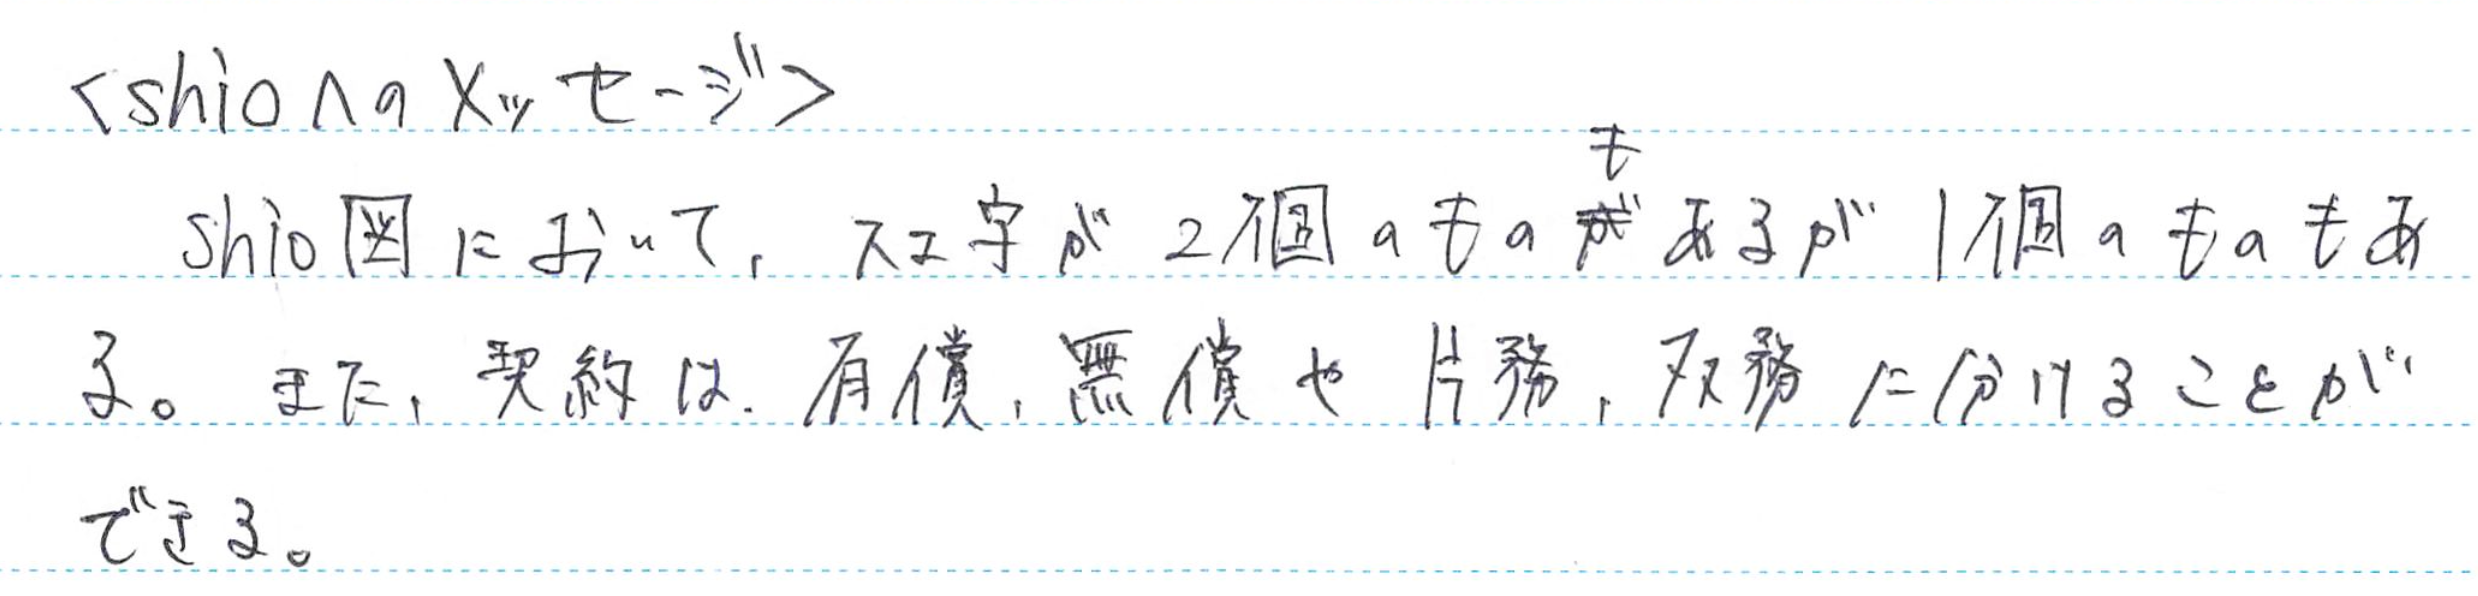 <shioへのメッセージ>
shio図において、スエ字が2個のものもあるが1個のものもあ
る。また、契約は、有償、無償や片務、双務に分けることが
できる。